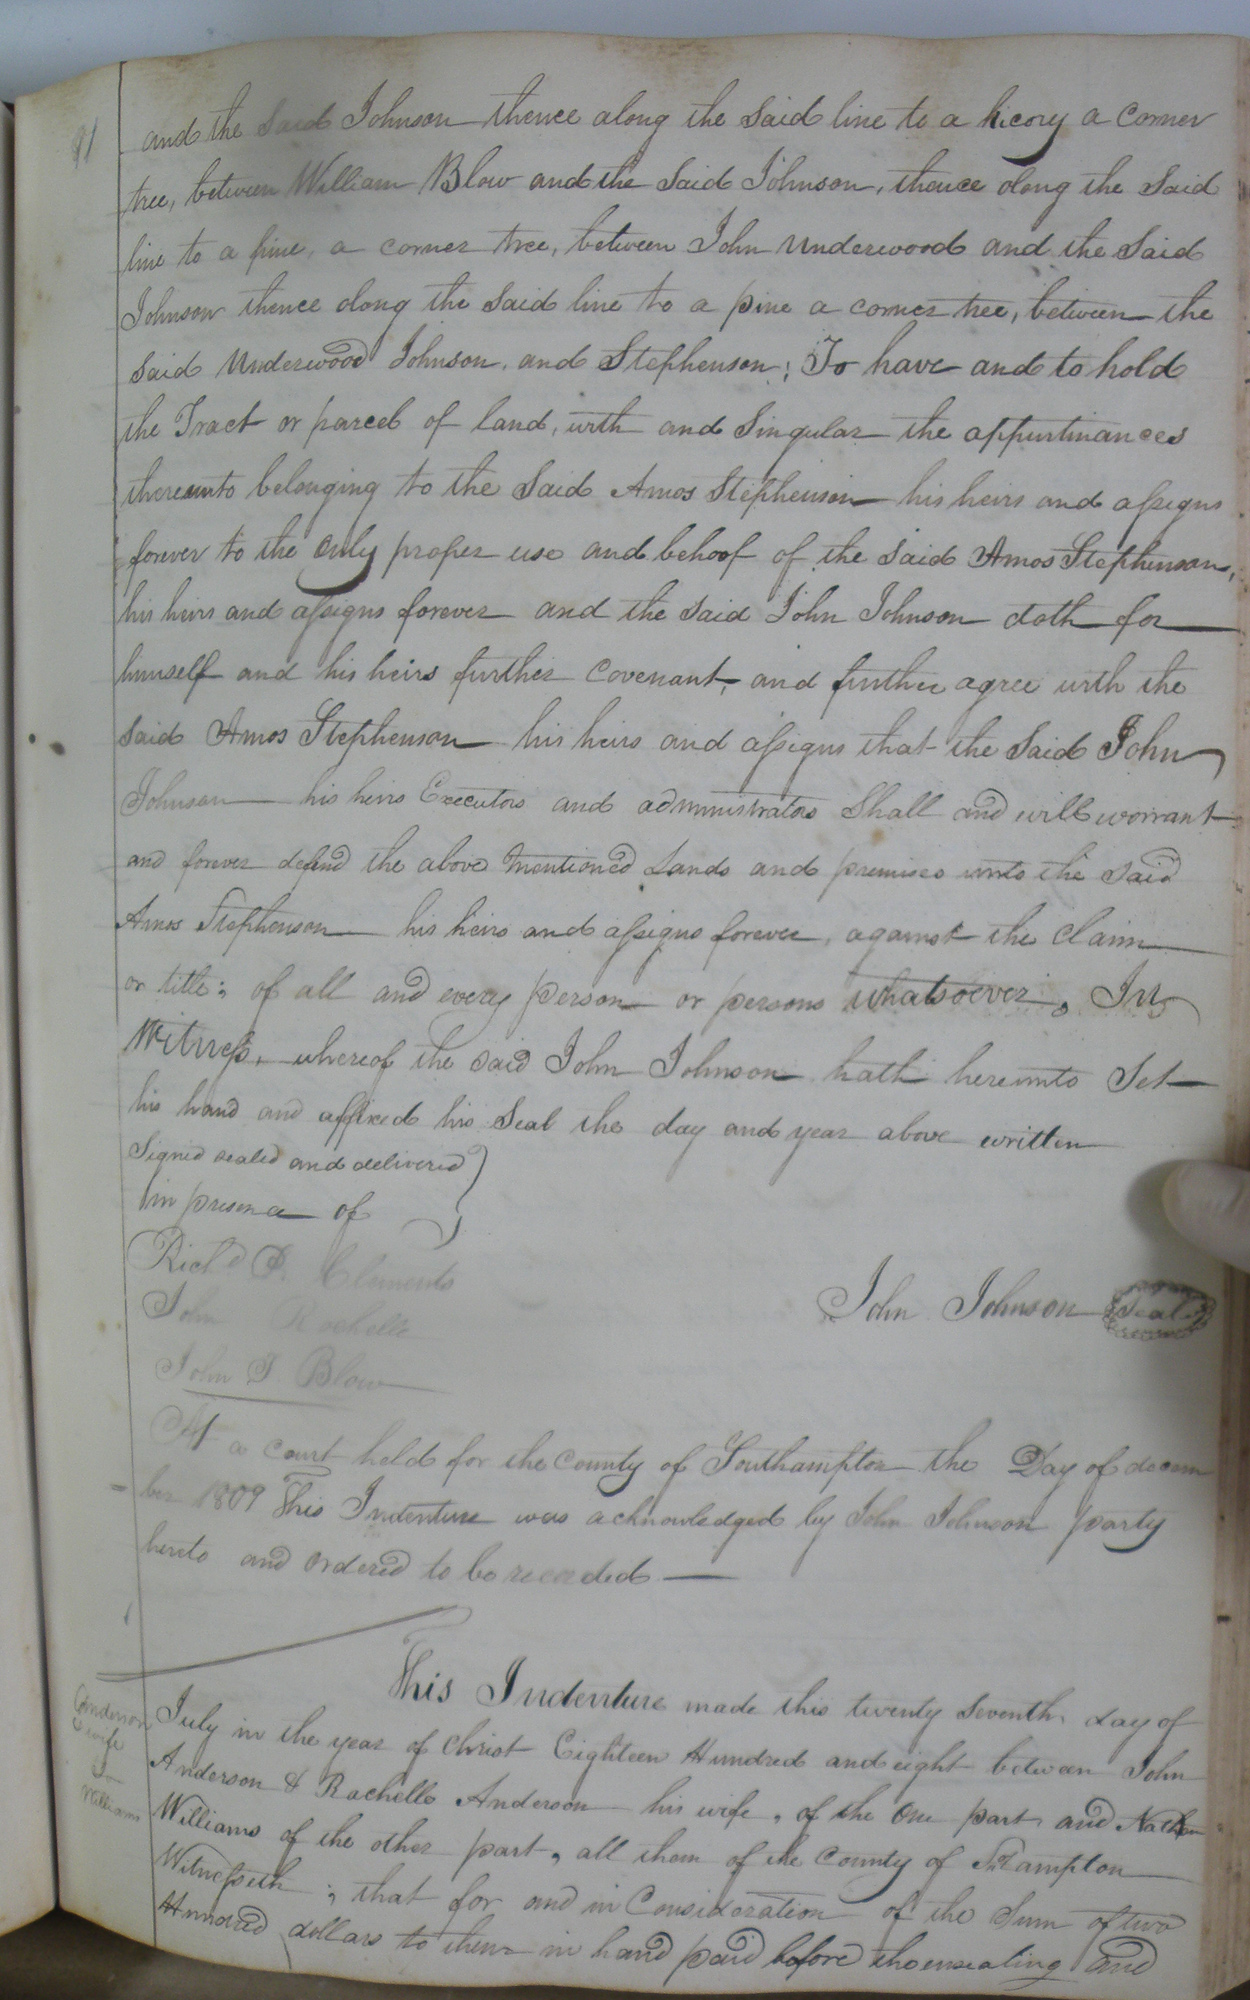 91
and the Said Johnson thence along the Said line to a hicory a corner
tree, between William Blow and the Said Johnson, thence along the Said
line to a pine, a corner tree, between John Underwood and the Said
Johnson thence along the Said line to a pine a corner tree, between the
Said Underwood Johnson, and Stephenson; To have and to hold
the Tract or parcel of land, with and Singular the appurtinances
thereunto belonging to the Said Amos Stephenson his heirs and assigns
forever to the only proper use and behoof of the Said Amos Stephenson,
his heirs and assigns forever and the Said John Johnson doth for
himself and his heirs further Covenant, and further agree with the
Said Amos Stephenson his heirs and assigns that the Said John
Johnson his heirs Executors and administrators Shall and will warrant
and forever defend the above mentioned Lands and premises unto the Said
Amos Stephenson his heirs and assigns forever, against the claim
or title; of all and every person or persons whatsoever, In
Witness, whereof the said John Johnson hath hereunto Set
his hand and affixed his Seal the day and year above written
Signed sealed and delivered
in presence of
Richd. P. Clements
John Rochelle
John Johnson Seal
John T. Blow
At a court held for the County of Southampton the Day of decem
ber 1809 This Indenture was acknowledged by John Johnson party
hereto and ordered to be recorded
This Indenture made this twenty Seventh day of
Anderson
& wife
to
Williams
July in the year of Christ Eighteen Hundred and eight between John
Anderson & Rachelle Anderson his wife, of the One part and Nathan
Williams of the other part, all them of the County of SHampton
Witnesseth; that for and in Consideration of the Sum of two
Hundred dollars to them in hand paid before the ensealing and